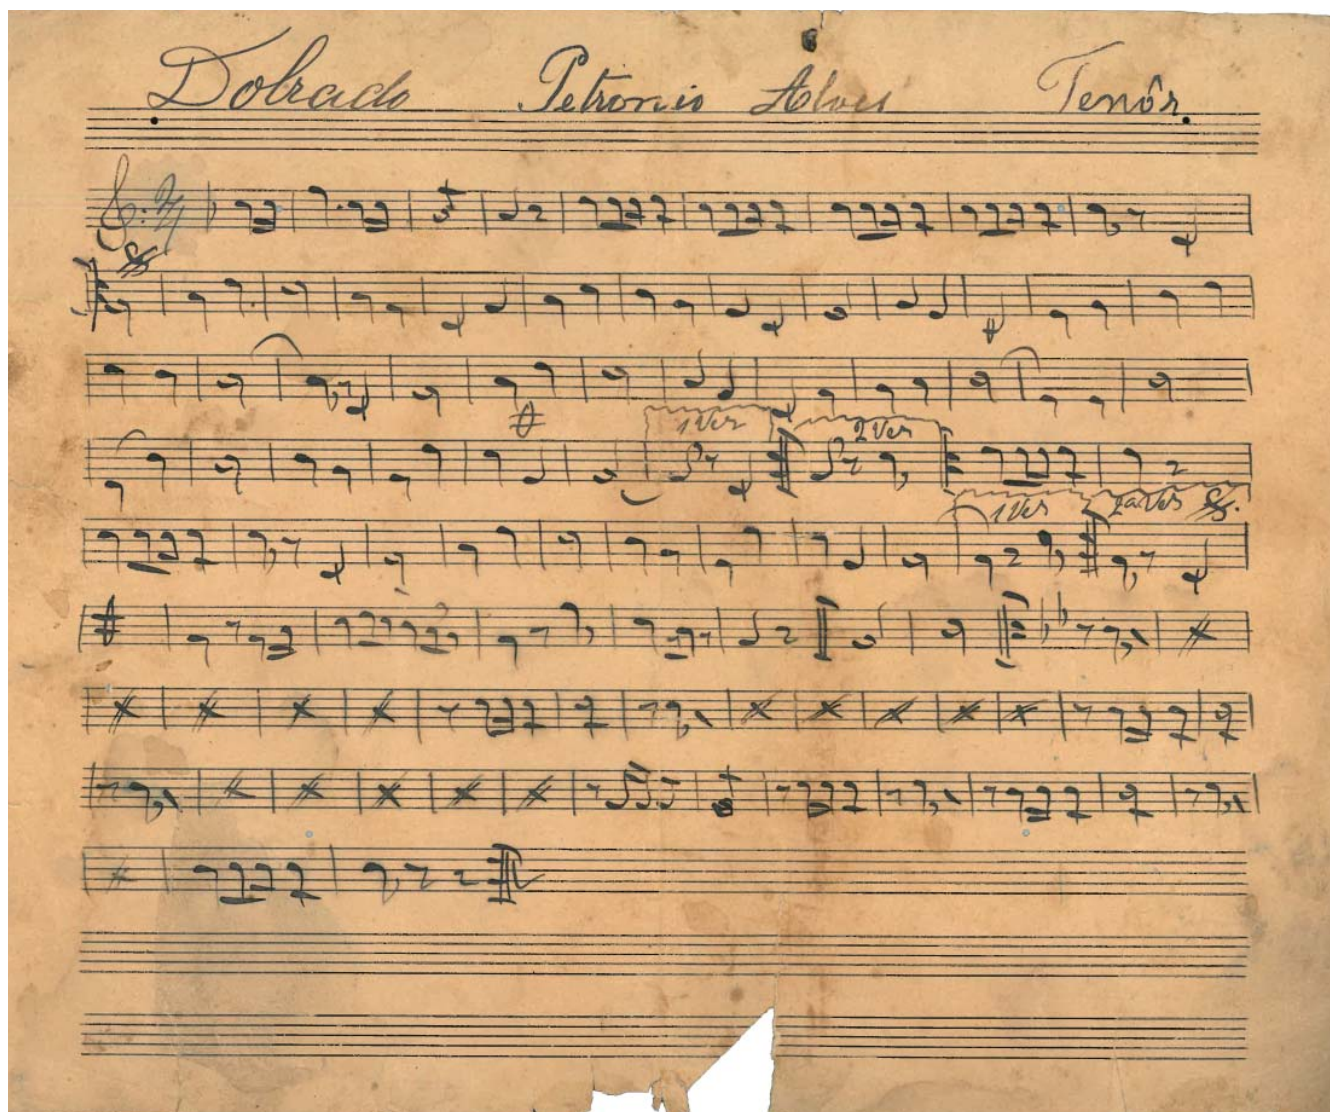 Dobrado Petronio Alves Tenôr.
1 Vez 2 Vez
1 Vez 2a Vez